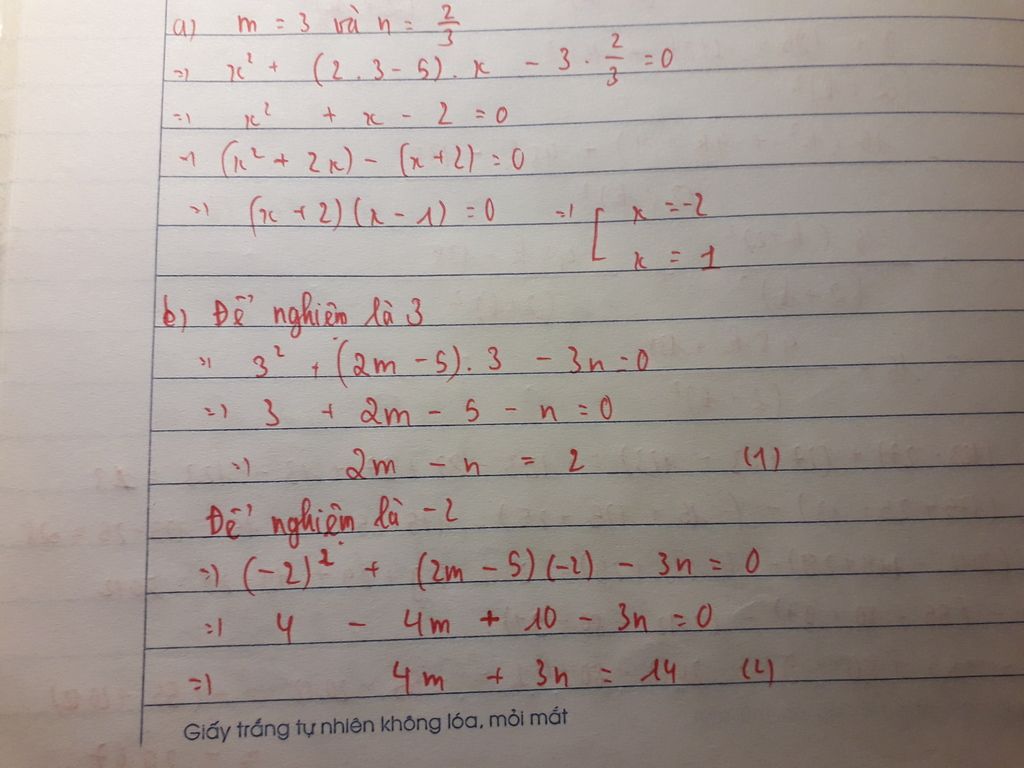 a) m = 3 và n = 2/3
=> x² + (2.3 - 5).x - 3 . 2/3 = 0
=> x² + x - 2 = 0
=> (x² + 2x) - (x + 2) = 0
=> (x + 2)(x - 1) = 0 => [ x = -2
x = 1
b) Để nghiệm là 3
=> 3² + (2m - 5).3 - 3n = 0
=> 3 + 2m - 5 - n = 0
=> 2m - n = 2 (1)
Để nghiệm là -2
=> (-2)² + (2m - 5)(-2) - 3n = 0
=> 4 - 4m + 10 - 3n = 0
=> 4m + 3n = 14 (2)
Giấy trắng tự nhiên không lóa, mỏi mắt